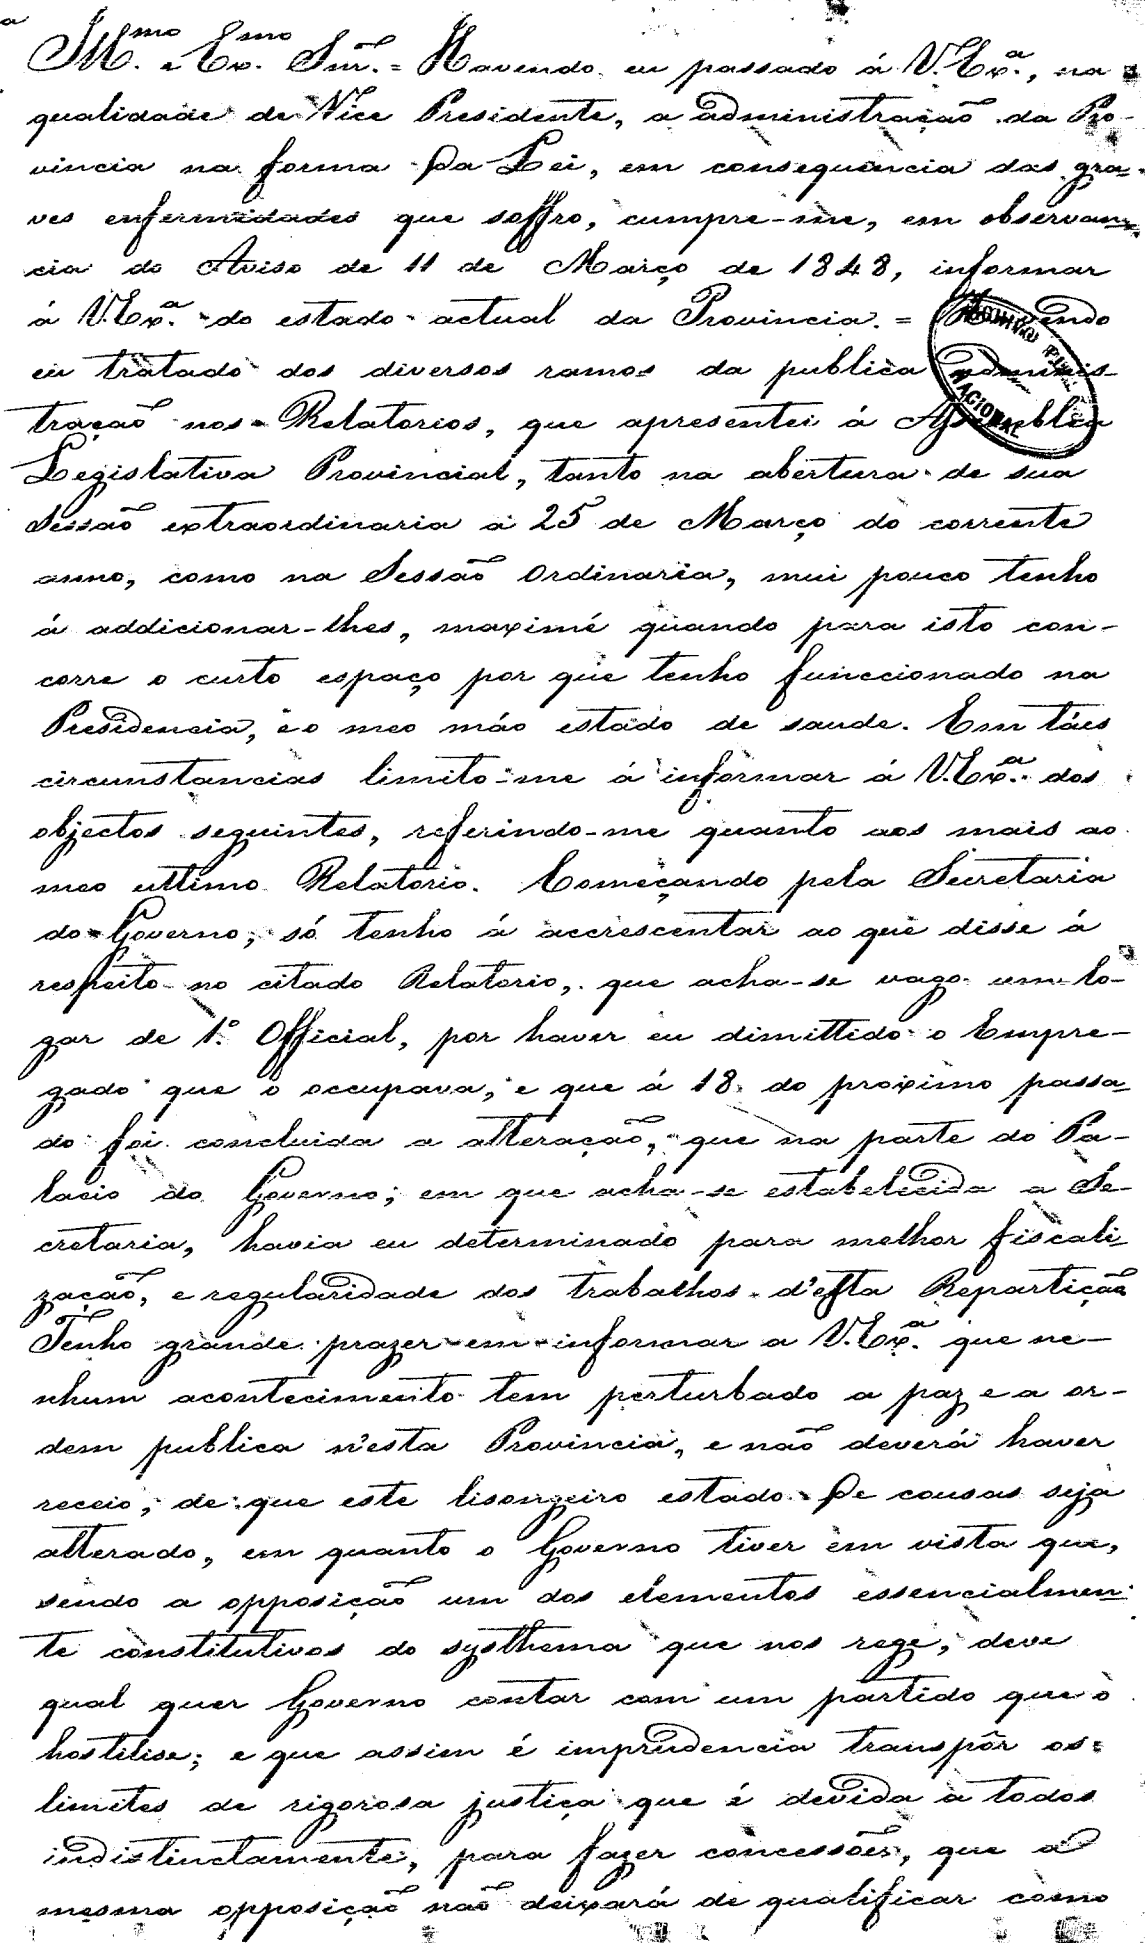 Ill.mo e Ex.mo Snr. = Havendo eu passado á V. Ex.a, na
qualidade de Vice Presidente, a administração da Pro-
vincia na forma da Lei, em consequencia das gra-
ves enfermidades que soffro, cumpre-me, em observan-
cia do Aviso de 11 de Março de 1848, informar
á V. Ex.a do estado actual da Provincia. = Havendo
eu tratado dos diversos ramos da publica adminis-
tração nos Relatorios, que apresentei á Assemblea
Legislativa Provincial, tanto na abertura de sua
Sessão extraordinaria a 25 de Março do corrente
anno, como na Sessão Ordinaria, mui pouco tenho
á addicionar-lhes, maximé quando para isto con-
corre o curto espaço por que tenho funccionado na
Presidencia, e o meo máo estado de saude. Em táes
circunstancias limito-me á informar á V. Ex.a dos
objectos seguintes, referindo-me quanto aos mais ao
meo ultimo Relatorio. Começando pela Secretaria
do Governo, só tenho á accrescentar ao que disse á
respeito no citado Relatorio, que acha-se vago um lo-
gar de 1.º Official, por haver eu dimittido o Empre-
gado que o occupava, e que á 18 do proximo passa-
do foi concluida a alteração, que na parte do Pa-
lacio do Governo; em que acha-se estabelecida a Se-
cretaria, havia eu determinado para melhor fiscali-
zação, e regularidade dos trabalhos d'esta Repartição
Tenho grande prazer em informar a V. Ex.a que ne-
nhum acontecimento tem perturbado a paz e a or-
dem publica n'esta Provincia, e não deverá haver
receio, de que este lisongeiro estado de cousas seja
alterado, em quanto o Governo tiver em vista que,
sendo a opposição um dos elementos essencialmen-
te constitutivos do systhema que nos rege, deve
qual quer Governo contar com um partido que o
hostilise; e que assim é imprudencia transpôr os
limites de rigorosa justiça que é devida a todos
indistinctamente, para fazer concessões, que a
mesma opposição não deixará de qualificar como
ARCHIVO PUBLICO
NACIONAL